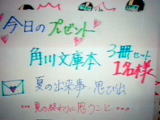 今日のプレゼント
角川文庫本 3冊セット
1名様
夏の出来事・思ひ出
…夏の終わりに思うこと…